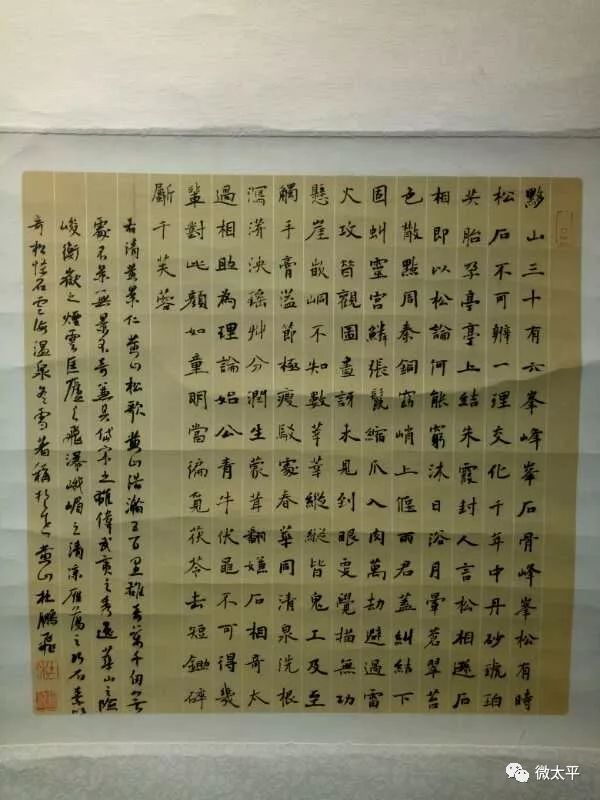 黟山三十有六峯峰峯石骨峰峯松有時
松石不可辨一理交化千年中丹砂琥珀
共胎孕亭亭上結朱霞封人言松相遜石
相即以松論何能窮沐日浴月暈蒼翠苔
色散點周秦銅窈峭上偃雨君蓋糾結下
固虯靈宮鱗張鬣縮爪入肉萬劫避過雷
火攻皆觀圖畫訝未見到眼更覺描無功
懸崖嵌峒不知數莘莘縱縱皆鬼工及至
觸手膏溢節極瘦駁蒙春華同清泉洗根
瀉漭泱瑤艸分潤生蒙茸翻嫌石相奇太
過相助為理論始公青牛伏龜不可得幾
輩對此顏如童明當編覓茯苓去短鋤碎
斸千芙蓉
右清黃景仁黃山松歌黃山浩瀚五百里雄奇萬千無
處不景無景不奇兼具岱宗之雄偉武夷之秀逸華山之險
峻衡嶽之煙雲匡廬之飛瀑峨嵋之清涼雁蕩之巧石素以
奇松怪石雲海溫泉冬雪著稱於世黃山杜鵬飛
微太平